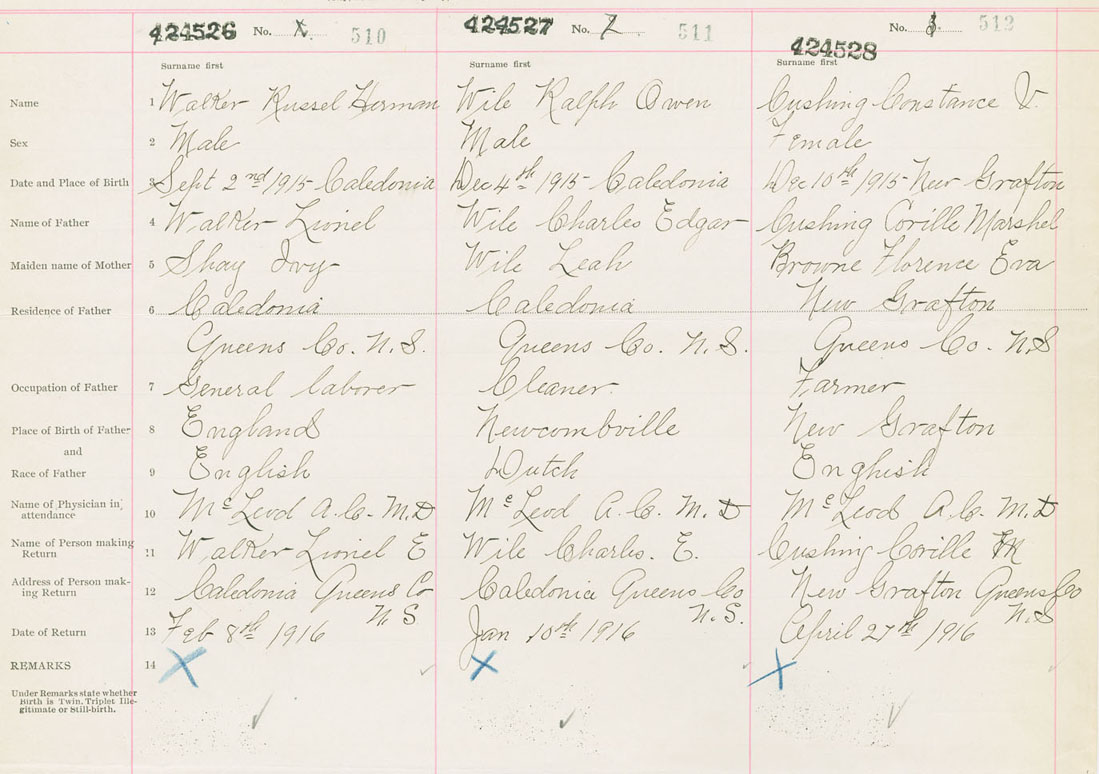 424526 No. 510 424527 No. 2 511 No. 3 512
424528
Surname first Surname first Surname first
Name 1 Walker Russel Herman Wile Ralph Owen Cushing Constance V.
Sex 2 Male Male Female
Date and Place of Birth 3 Sept 2nd 1915 Caledonia Dec 4th 1915 Caledonia Dec 10th 1915 New Grafton
Name of Father 4 Walker Lionel Wile Charles Edgar Cushing Corille Marshel
Maiden name of Mother 5 Shay Ivy Wile Leah Browne Florence Eva
Residence of Father 6 Caledonia Caledonia New Grafton
Queens Co. N.S. Queens Co. N.S. Queens Co. N.S
Occupation of Father 7 General laborer Cleaner. Farmer
Place of Birth of Father 8 England Newcombville New Grafton
and
Race of Father 9 English Dutch English
Name of Physician in attendance 10 McLeod A.C. M.D McLeod A.C. M.D McLeod A.C. M.D
Name of Person making Return 11 Walker Lionel E Wile Charles. E. Cushing Corille M
Address of Person making Return 12 Caledonia Queens Co Caledonia Queens Co New Grafton Queens Co
N.S N.S. N.S
Date of Return 13 Feb 8th 1916 Jan 10th 1916 April 27th 1916
REMARKS 14 X X X
Under Remarks state whether
Birth is Twin, Triplet Ille-
gitimate or Still-birth.